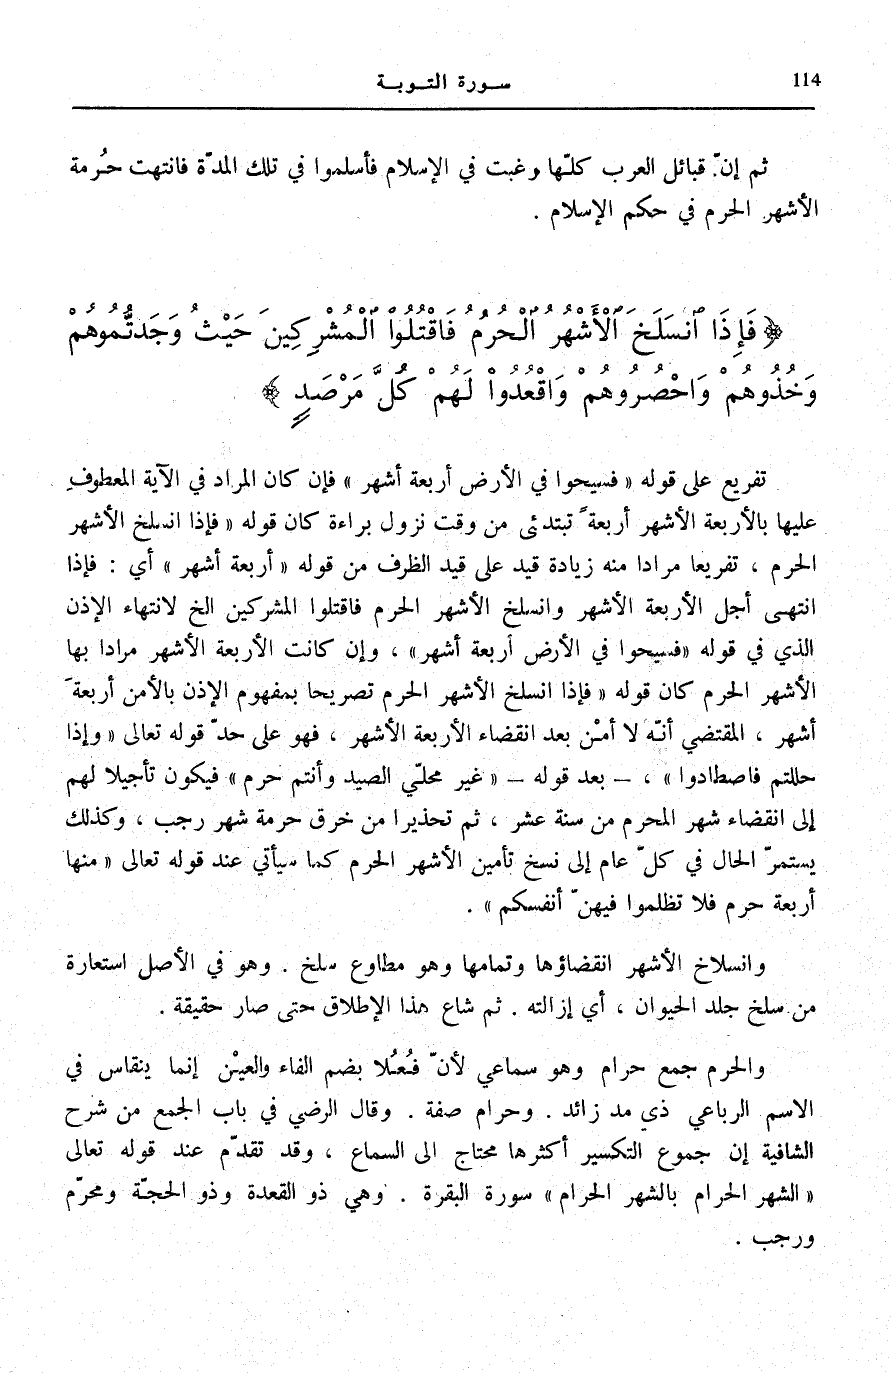 114
سورة التوبة
ثم إنّ قبائل العرب كلّها رغبت في الإسلام فأسلموا في تلك المدّة فانتهت حُرمة
الأشهر الحرم في حكم الإسلام .
﴿ فَإِذَا ٱنسَلَخَ ٱلْأَشْهُرُ ٱلْحُرُمُ فَاقْتُلُوا۟ ٱلْمُشْرِكِينَ حَيْثُ وَجَدتُّمُوهُمْ
وَخُذُوهُمْ وَاحْصُرُوهُمْ وَاقْعُدُوا۟ لَهُمْ كُلَّ مَرْصَدٍ ﴾
تفريع على قوله « فسيحوا في الأرض أربعة أشهر » فإن كان المراد في الآية المعطوفِ
عليها بالأربعة الأشهر أربعةً تبتدئ من وقت نزول براءة كان قوله « فإذا انسلخ الأشهر
الحرم ، تفريعا مرادا منه زيادة قيد على قيد الظرف من قوله « أربعة أشهر » أي : فإذا
انتهى أجل الأربعة الأشهر وانسلخ الأشهر الحرم فاقتلوا المشركين الخ لانتهاء الإذن
الذي في قوله «فسيحوا في الأرض أربعة أشهر» ، وإن كانت الأربعة الأشهر مرادا بها
الأشهر الحرم كان قوله « فإذا انسلخ الأشهر الحرم تصريحا بمفهوم الإذن بالأمن أربعةَ
أشهر ، المقتضي أنّه لا أمْن بعد انقضاء الأربعة الأشهر ، فهو على حدّ قوله تعالى « وإذا
حللتم فاصطادوا » ، – بعد قوله – « غير محلّي الصيد وأنتم حرم » فيكون تأجيلا لهم
إلى انقضاء شهر المحرم من سنة عشر ، ثم تحذيرا من خرق حرمة شهر رجب ، وكذلك
يستمرّ الحال في كلّ عام إلى نسخ تأمين الأشهر الحرم كما سيأتي عند قوله تعالى « منها
أربعة حرم فلا تظلموا فيهنّ أنفسكم » .
وانسلاخ الأشهر انقضاؤها وتمامها وهو مطاوع سلخ . وهو في الأصل استعارة
من سلخ جلد الحيوان ، أي إزالته . ثم شاع هذا الإطلاق حتى صار حقيقة .
والحرم جمع حرام وهو سماعي لأنّ فُعُلا بضم الفاء والعيْن إنما ينقاس في
الاسم الرباعي ذي مد زائد . وحرام صفة . وقال الرضي في باب الجمع من شرح
الشافية إن جموع التكسير أكثرها محتاج الى السماع ، وقد تقدّم عند قوله تعالى
« الشهر الحرام بالشهر الحرام » سورة البقرة . وهي ذو القعدة وذو الحجّة ومحرّم
ورجب .